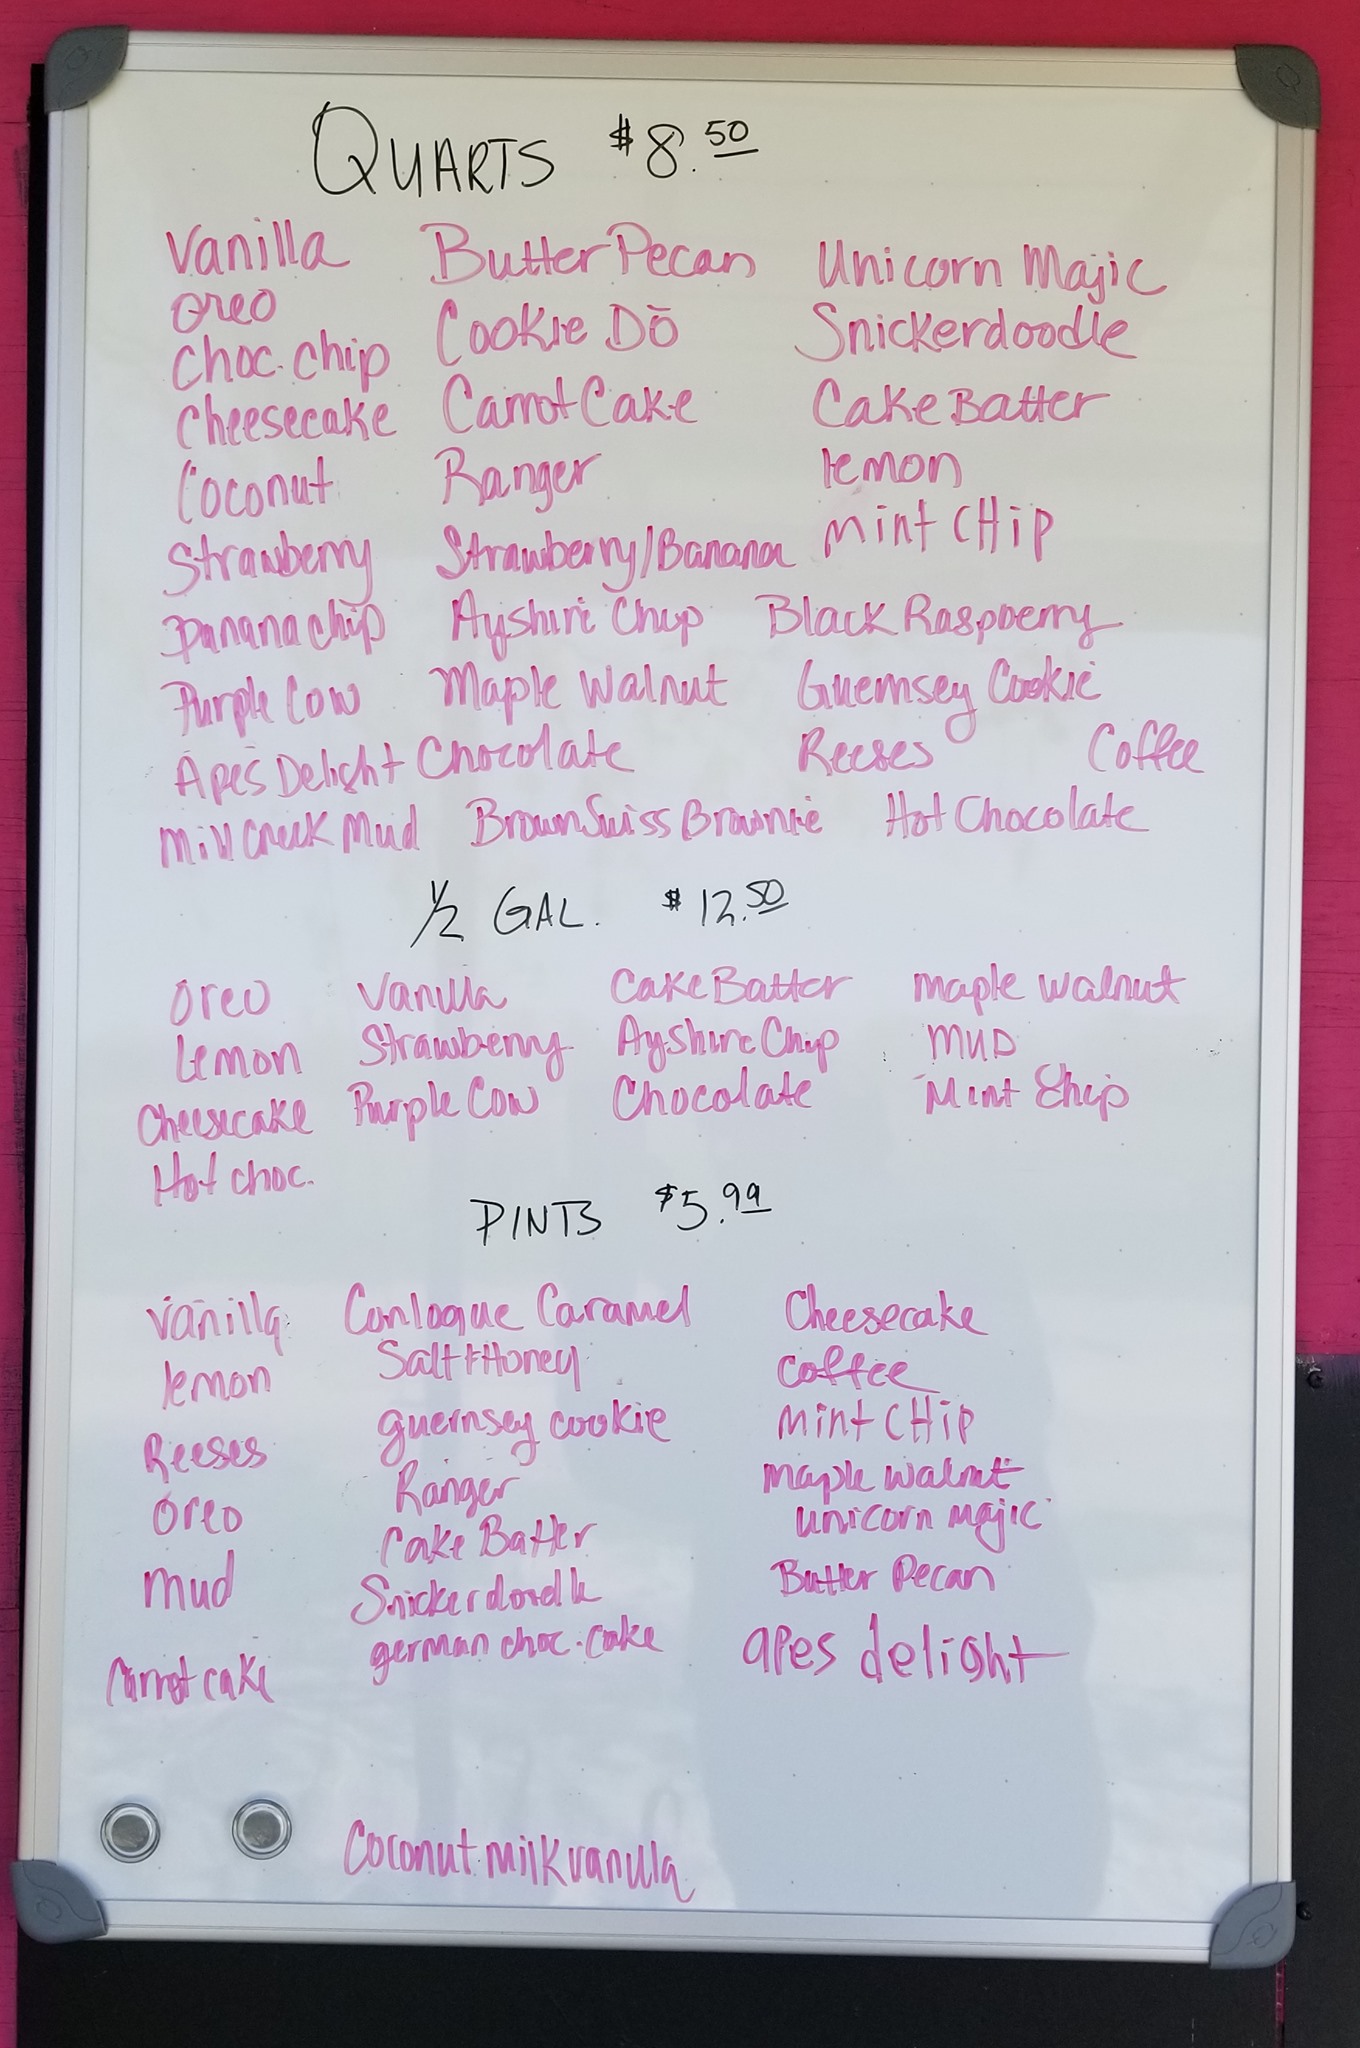 QUARTS $8.50
Vanilla Butter Pecan Unicorn Majic
Oreo Cookie Dō Snickerdoodle
Choc. Chip Carrot Cake Cake Batter
Cheesecake Ranger lemon
Coconut Strawberry/Banana Mint CHip
Strawberry Ayshire Chip Black Raspberry
Banana chip Maple Walnut Guernsey Cookie
Purple Cow Chocolate Reeses Coffee
Apes Delight Brown Swiss Brownie Hot Chocolate
Mill Creek Mud
1/2 GAL. $12.50
Oreo Vanilla Cake Batter Maple Walnut
Lemon Strawberry Ayshire Chip MUD
Cheesecake Purple Cow Chocolate Mint Chip
Hot choc.
PINTS $5.99
Vanilla Conlogue Caramel Cheesecake
lemon Salt + Honey Coffee
Reeses guernsey cookie Mint CHip
Oreo Ranger Maple Walnut
Mud Cake Batter Unicorn Majic
Carrot cake Snickerdoodle Butter Pecan
german choc. cake apes delight
Coconut milk vanilla